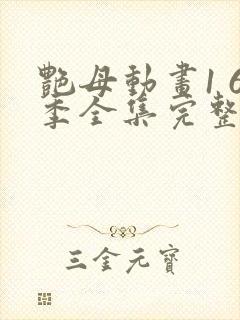 艷母動畫16
季全集完整
三金元寶